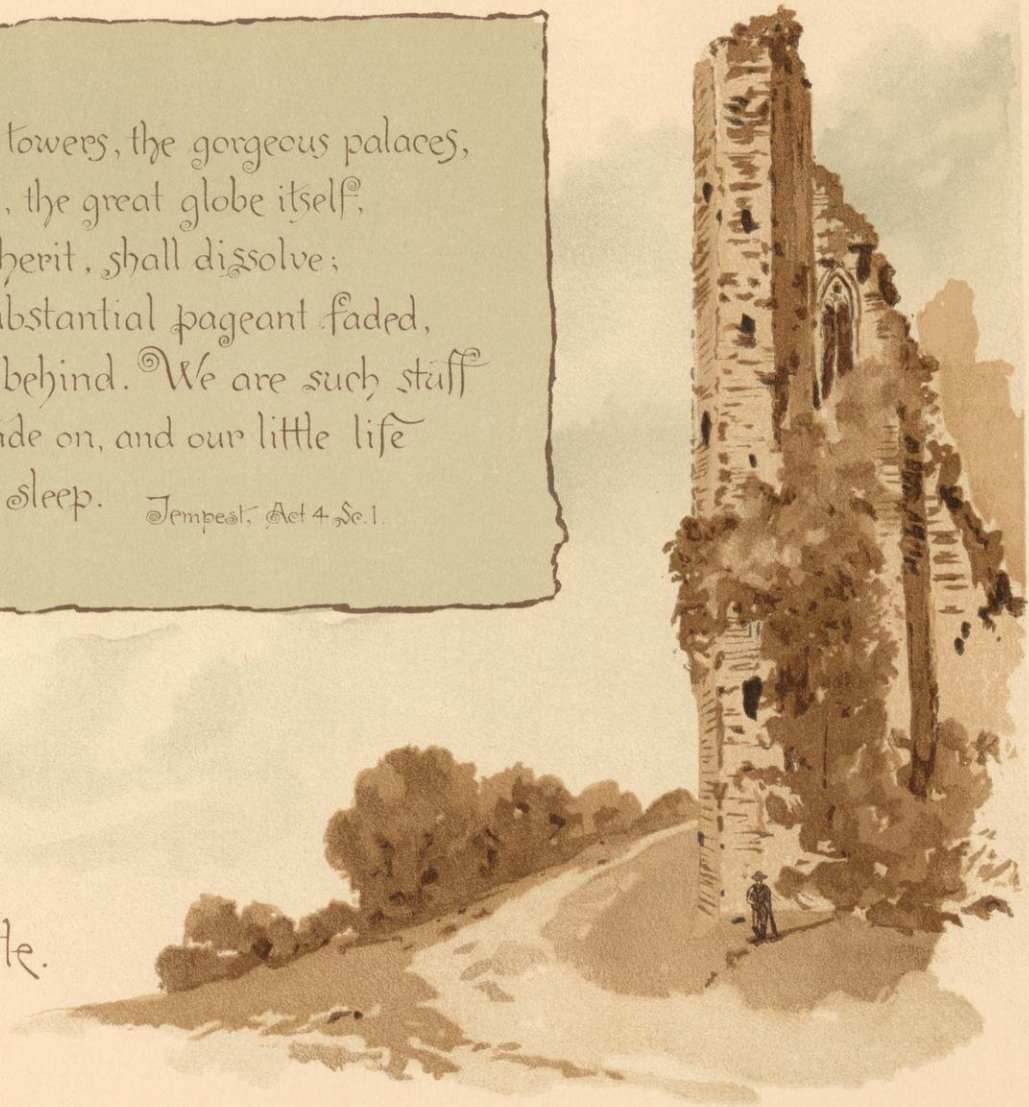 towers, the gorgeous palaces,
, the great globe itself,
herit, shall dissolve;
ubstantial pageant faded,
behind. We are such stuff
de on, and our little life
sleep.
Tempest, Act 4 Sc. 1.
tle.